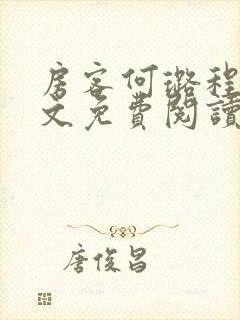 房客何璐程
文免費閱讀
唐俊昌